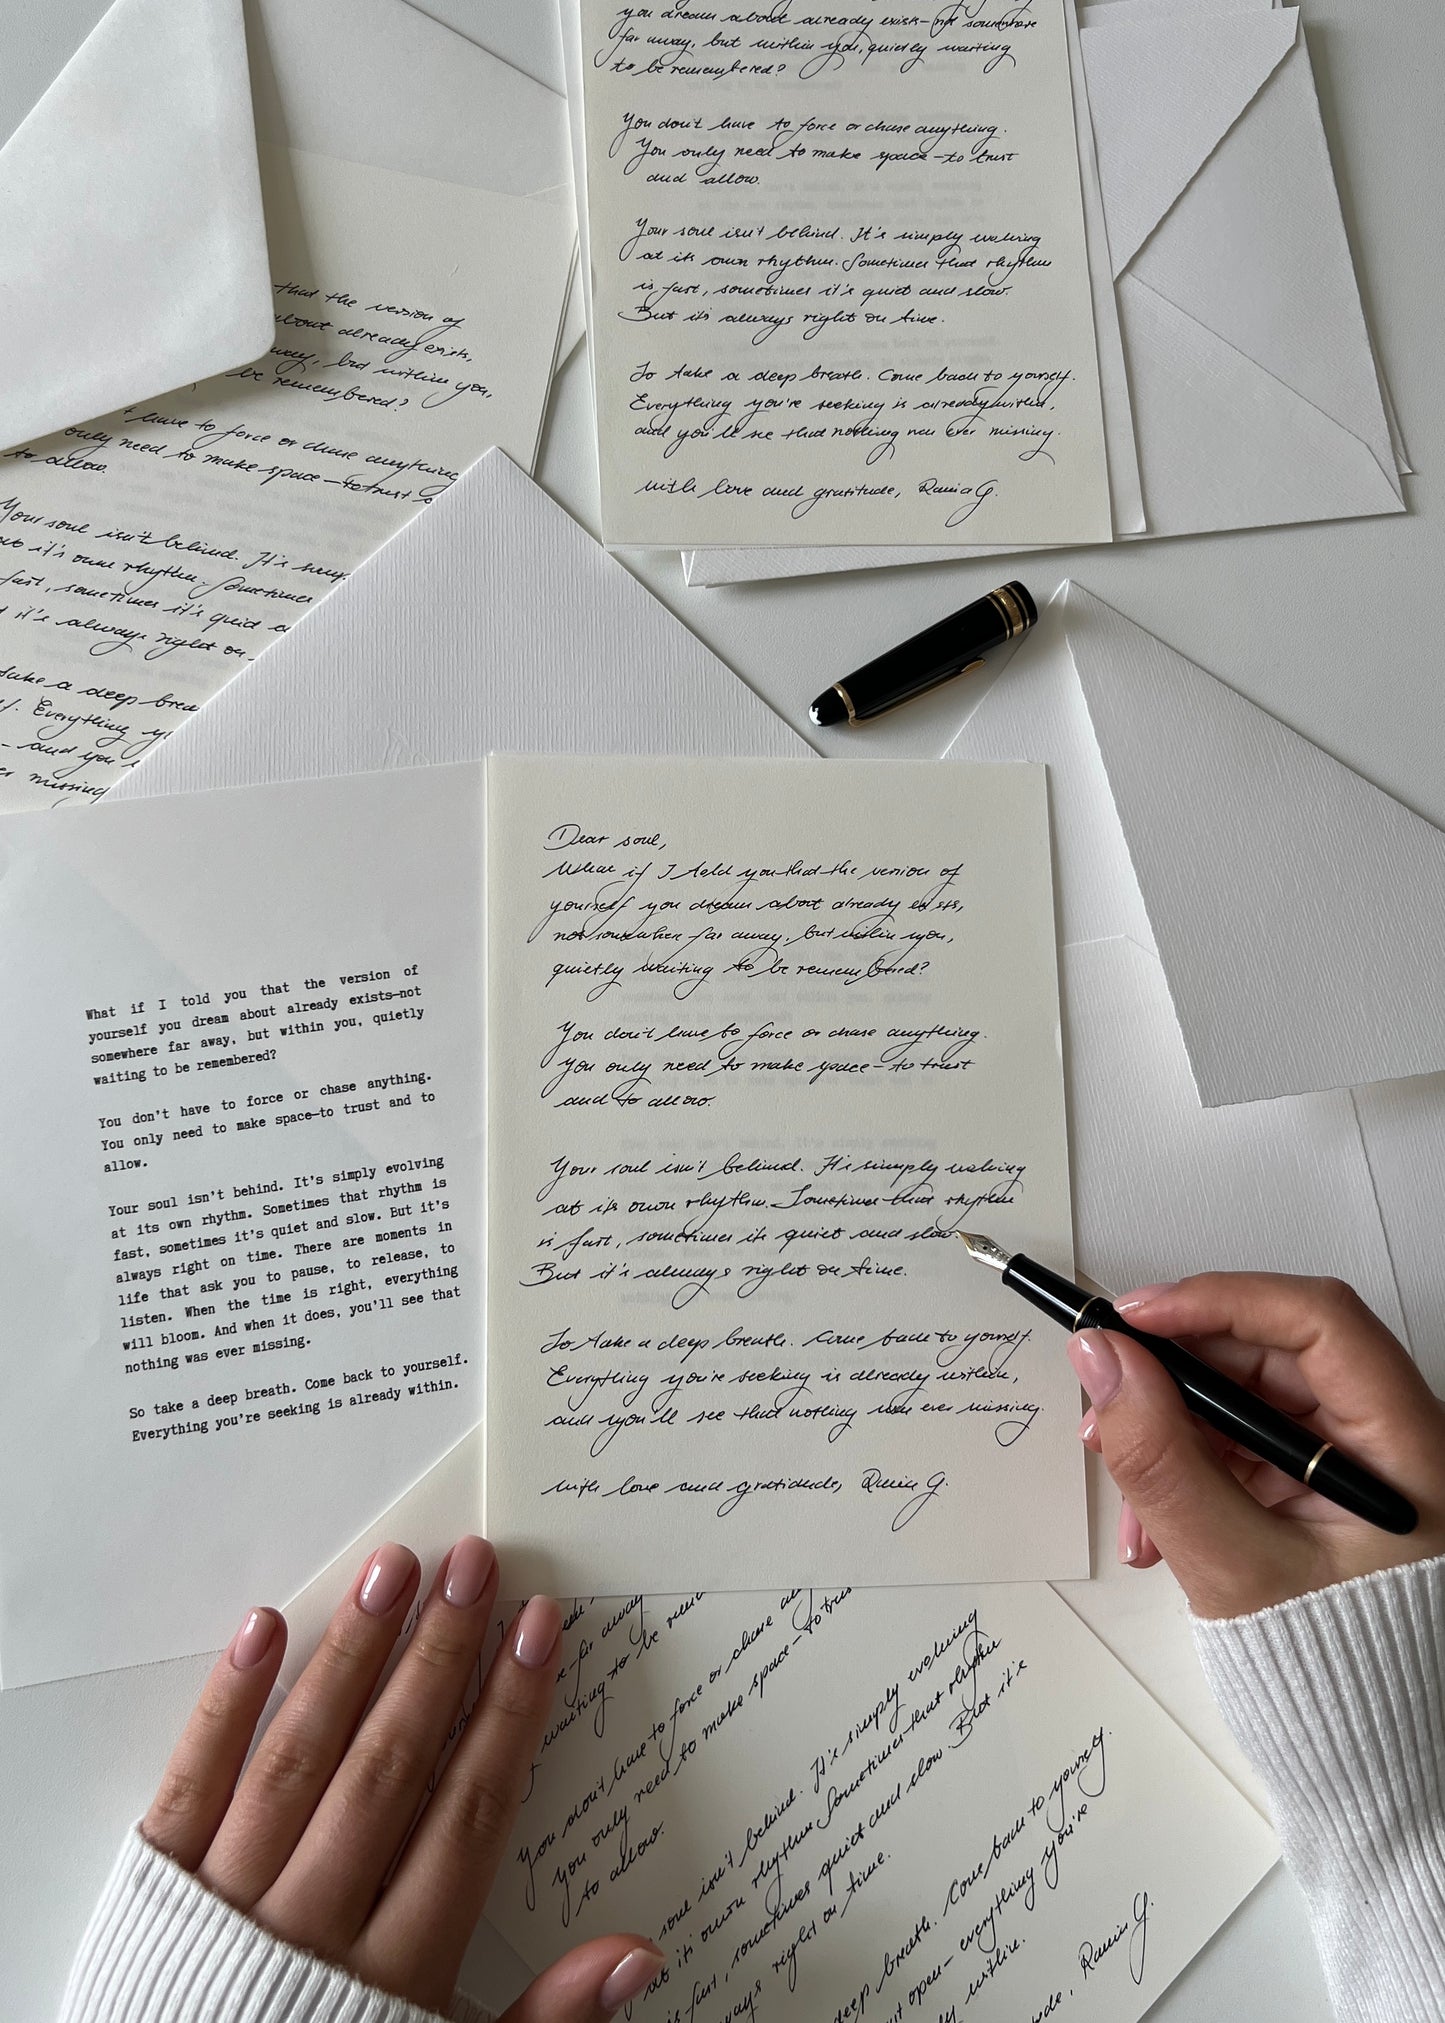 you dream about already exists—not somewhere
far away, but within you, quietly waiting
to be remembered?
You don't have to force or chase anything.
You only need to make space—to trust
and allow.
Your soul isn't behind. It's simply evolving
at its own rhythm. Sometimes that rhythm
is fast, sometimes it's quiet and slow.
But it's always right on time.
So take a deep breath. Come back to yourself.
Everything you're seeking is already within,
and you'll see that nothing was ever missing.
With love and gratitude, Rania G.
that the version of
about already exists,
way, but within you,
be remembered?
t have to force or chase anything
only need to make space—to trust
to allow.
Your soul isn't behind. It's
it's own rhythm. Sometimes
fast, sometimes it's quiet
t it's always right on
take a deep brea
Everything
and you
missing
Dear soul,
What if I told you that the version of
yourself you dream about already exists,
not somewhere far away, but within you,
quietly waiting to be remembered?
You don't have to force or chase anything.
You only need to make space—to trust
and to allow.
Your soul isn't behind. It's simply evolving
at its own rhythm. Sometimes that rhythm
is fast, sometimes its quiet and slow.
But it's always right on time.
So take a deep breath. Come back to yourself.
Everything you're seeking is already within,
and you'll see that nothing was ever missing.
With love and gratitude, Rania G.
What if I told you that the version of
yourself you dream about already exists—not
somewhere far away, but within you, quietly
waiting to be remembered?
You don't have to force or chase anything.
You only need to make space—to trust and to
allow.
Your soul isn't behind. It's simply evolving
at its own rhythm. Sometimes that rhythm is
fast, sometimes it's quiet and slow. But it's
always right on time. There are moments in
life that ask you to pause, to release, to
listen. When the time is right, everything
will bloom. And when it does, you'll see that
nothing was ever missing.
So take a deep breath. Come back to yourself.
Everything you're seeking is already within.
far away
waiting to be
You don't have to force or chase
You only need to make space—to
to allow.
soul isn't behind. It's simply evolving
at it's own rhythm Sometimes that rhythm
is fast, sometimes quiet and slow. But it's
ways right on time.
deep breath. Come back to yourself.
open—everything you're
within.
Rania G.